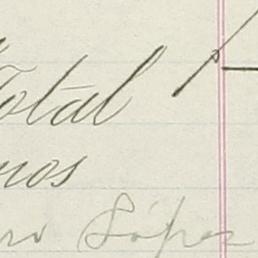 Total
nos
ro López